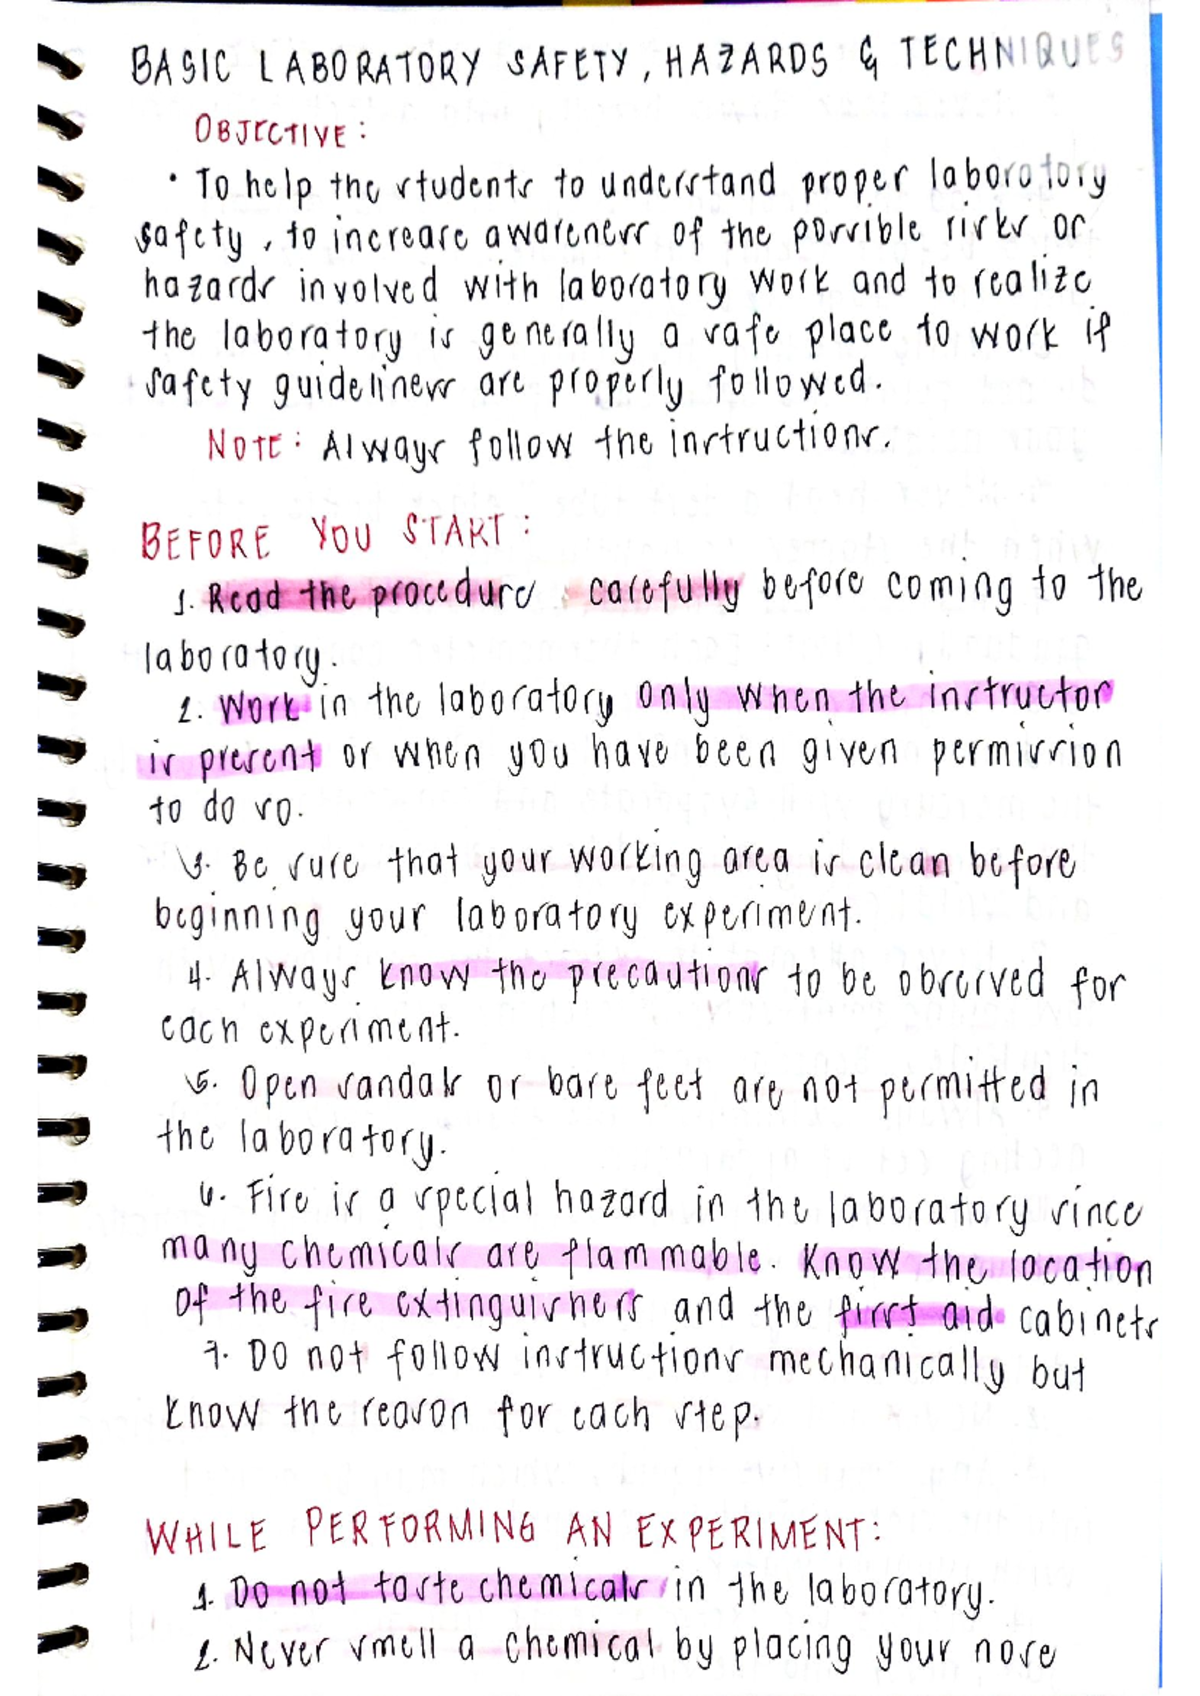 BASIC LABORATORY SAFETY, HAZARDS & TECHNIQUES
OBJECTIVE:
• To help the students to understand proper laboratory
safety, to increase awareness of the possible risks or
hazards involved with laboratory work and to realize
the laboratory is generally a safe place to work if
safety guideliness are properly followed.
NOTE: Always follow the instructions.
BEFORE YOU START:
1. Read the procedure carefully before coming to the
laboratory.
2. Work in the laboratory only when the instructor
is present or when you have been given permission
to do so.
3. Be sure that your working area is clean before
beginning your laboratory experiment.
4. Always know the precautions to be observed for
each experiment.
5. Open sandals or bare feet are not permitted in
the laboratory.
6. Fire is a special hazard in the laboratory since
many chemicals are flammable. Know the location
of the fire extinguishers and the first aid cabinets
7. Do not follow instructions mechanically but
know the reason for each step.
WHILE PERFORMING AN EXPERIMENT:
1. Do not taste chemicals in the laboratory.
2. Never smell a chemical by placing your nose